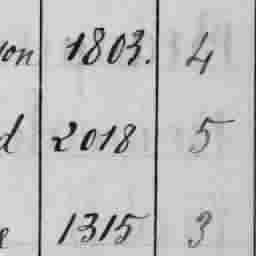 on 1803. 4
d 2018 5
e 1315 3